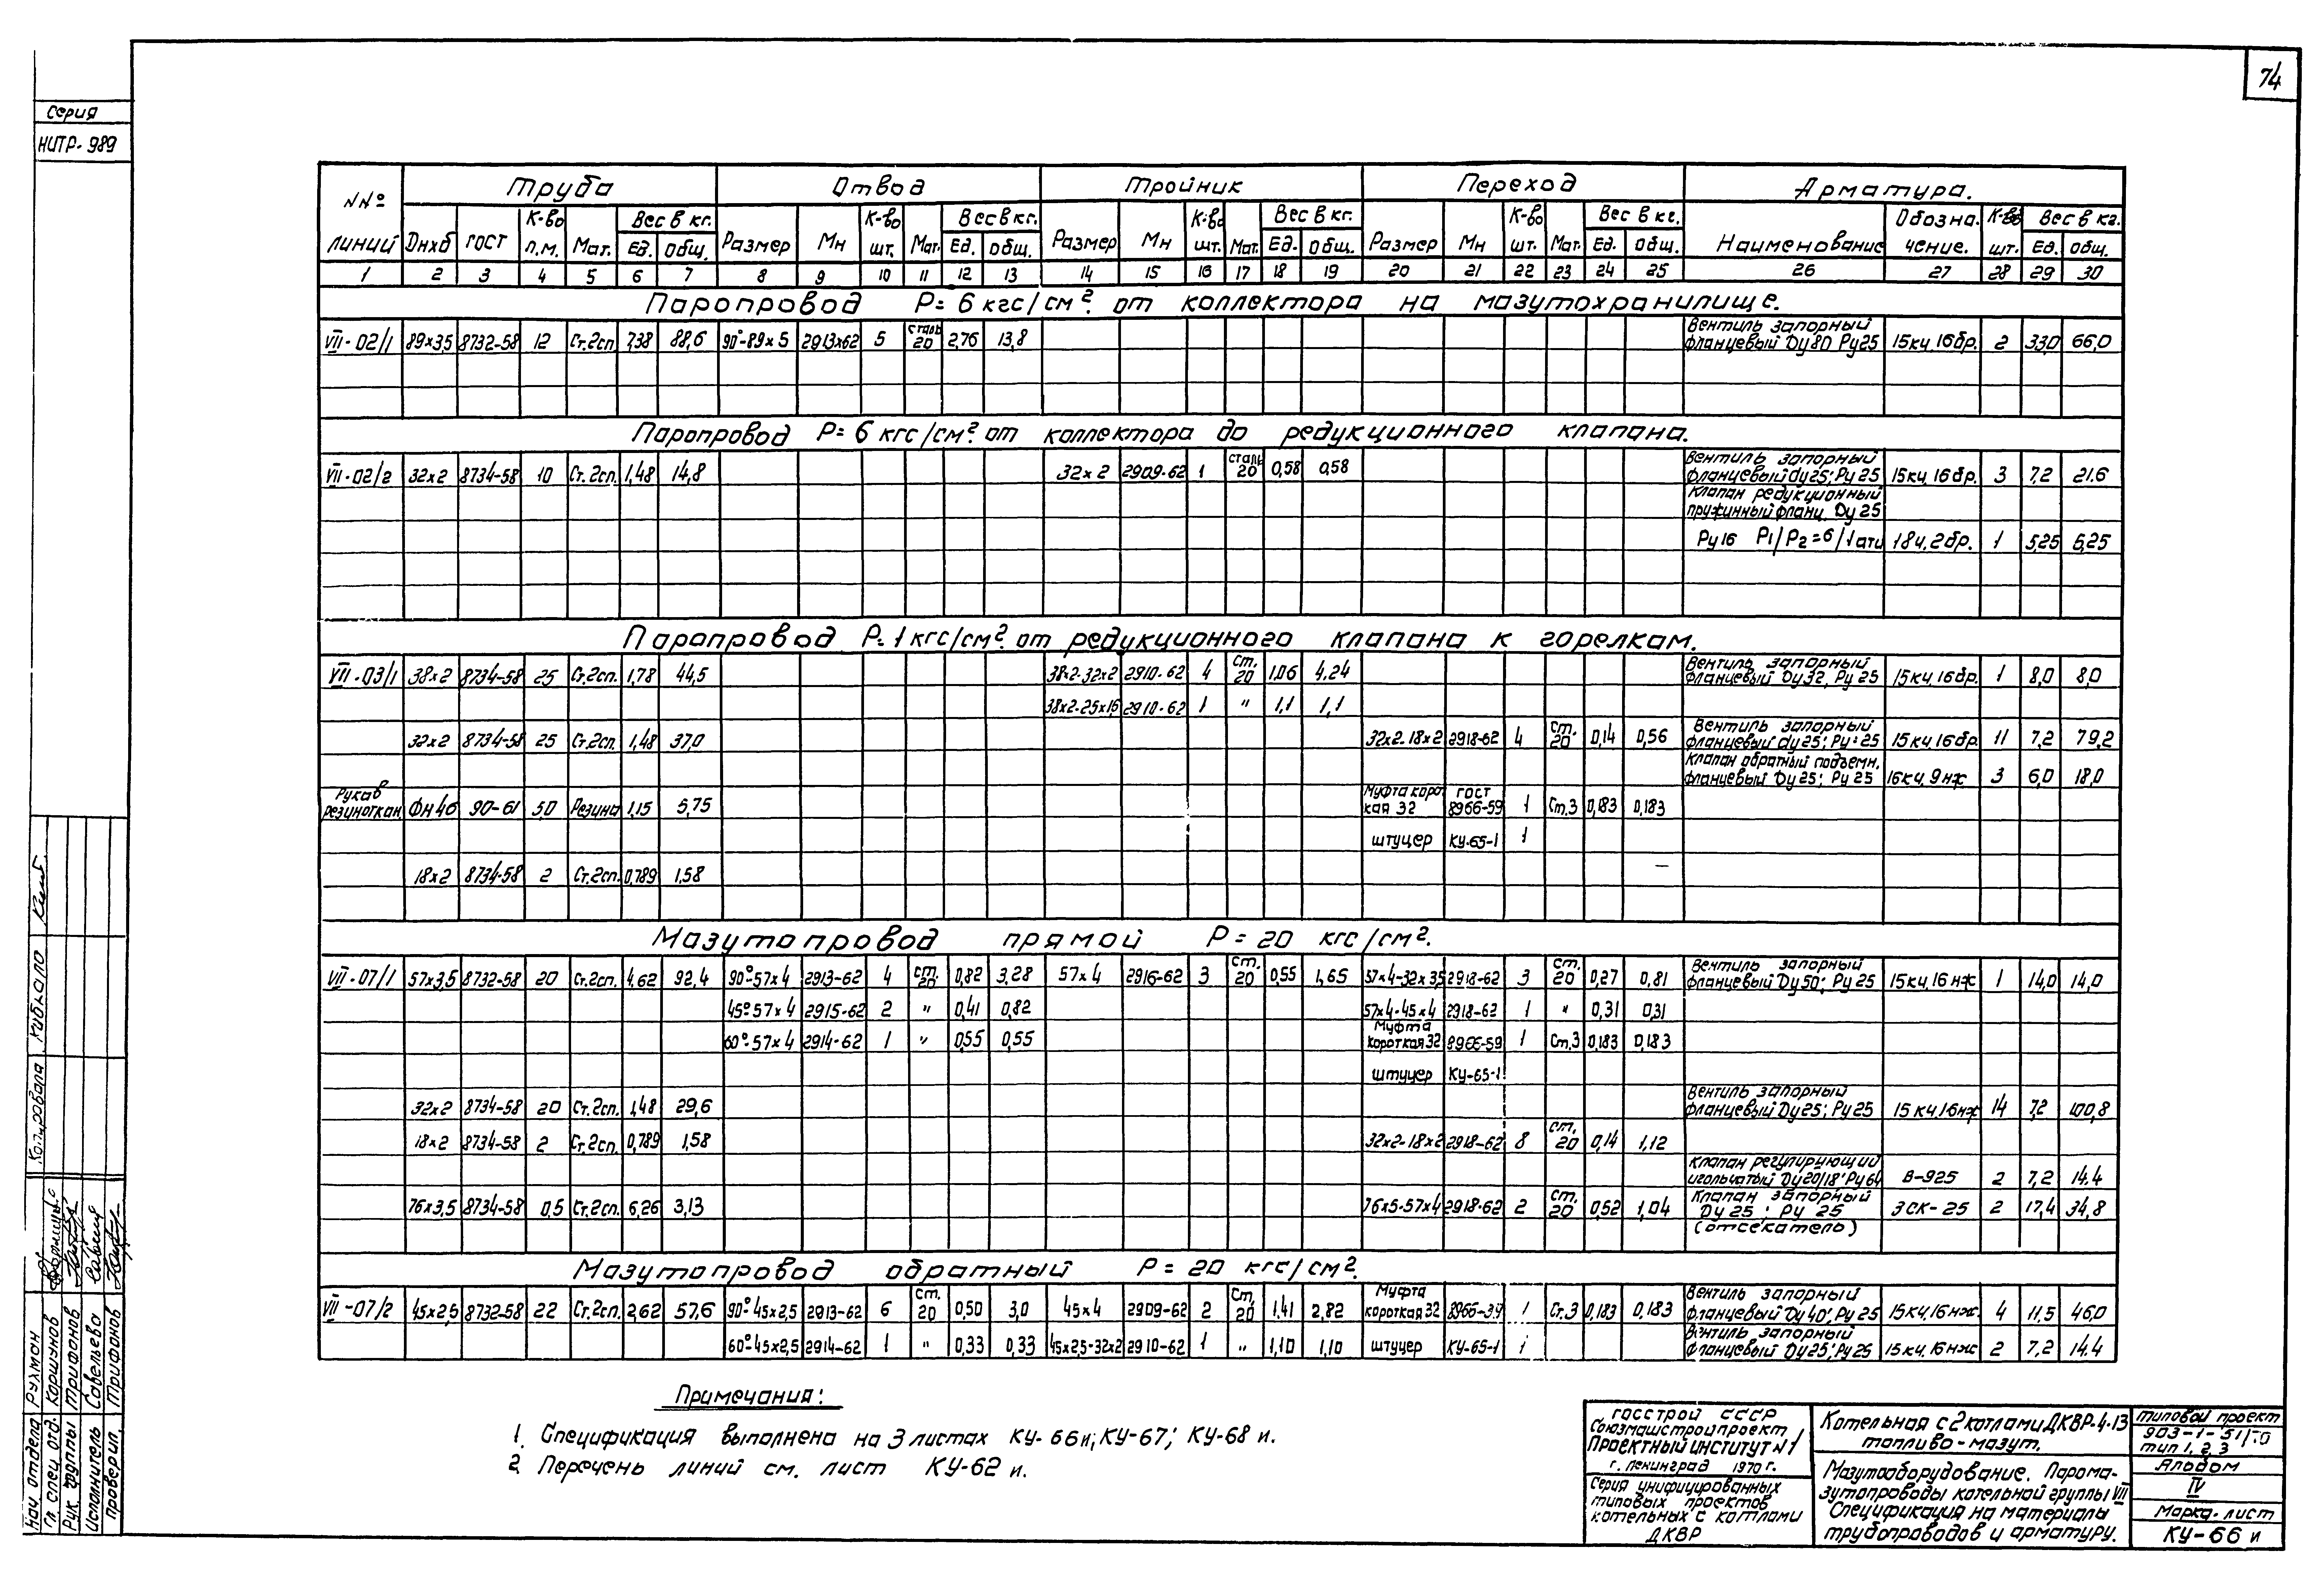 74
Серия
НИТР-989
NNº линий | Труба | Отвод | Тройник | Переход | Арматура.
Днхб | ГОСТ | К-во п.м. | Мат. | Вес в кг. Ед. | Общ. | Размер | Мн | К-во шт. | Мат. | Вес в кг. Ед. | Общ. | Размер | Мн | К-во шт. | Мат. | Вес в кг. Ед. | Общ. | Размер | Мн | К-во шт. | Мат. | Вес в кг. Ед. | Общ. | Наименование | Обозначение. | К-во шт. | Вес в кг. Ед. | Общ.
1 2 3 4 5 6 7 8 9 10 11 12 13 14 15 16 17 18 19 20 21 22 23 24 25 26 27 28 29 30
Паропровод Р=6 кгс/см². от коллектора на мазутохранилище.
VII-02/1 89х3,5 8732-58 12 Ст.2сп. 7,38 88,6 90°-89х5 2913х62 5 сталь 20 2,76 13,8 Вентиль запорный фланцевый Ду80 Ру25 15кч.16бр. 2 33,0 66,0
Паропровод Р=6 кгс/см². от коллектора до редукционного клапана.
VII-02/2 32х2 8734-58 10 Ст.2сп. 1,48 14,8 32х2 2909-62 1 сталь 20 0,58 0,58 Вентиль запорный фланцевый Ду25; Ру25 15кч.16бр. 3 7,2 21.6
Клапан редукционный
пружинный фланц. Ду 25
Ру16 Р1/Р2=6/1ати 18ч.2бр. 1 5,25 5,25
Паропровод Р=1 кгс/см². от редукционного клапана к горелкам.
VII-03/1 38х2 8734-58 25 Ст.2сп. 1,78 44,5 38х2-32х2 2910-62 4 Ст. 20 1,06 4,24 Вентиль запорный фланцевый Ду32, Ру25 15кч.16бр. 1 8,0 8,0
38х2-25х1,6 2910-62 1 " 1,1 1,1
32х2 8734-58 25 Ст.2сп. 1,48 37,0 32х2-18х2 2918-62 4 Ст. 20 0,14 0,56 Вентиль запорный фланцевый Ду25; Ру=25 15кч.16бр. 11 7,2 79,2
Клапан обратный подъемн. фланцевый Ду25; Ру25 16кч.9нж 3 6,0 18,0
Рукав резиноткан. Фн46 90-61 5,0 Резина 1,15 5,75 Муфта короткая 32 ГОСТ 8966-59 1 Ст.3 0,183 0,183
штуцер КУ-65-1 1
18х2 8734-58 2 Ст.2сп. 0,789 1,58 —
Мазутопровод прямой Р=20 кгс/см².
VII-07/1 57х3,5 8732-58 20 Ст.2сп. 4,62 92,4 90°-57х4 2913-62 4 ст. 20 0,82 3,28 57х4 2916-62 3 Ст. 20 0,55 1,65 57х4-32х3,5 2918-62 3 Ст. 20 0,27 0,81 Вентиль запорный фланцевый Ду50; Ру25 15кч.16нж 1 14,0 14,0
45°-57х4 2915-62 2 " 0,41 0,82 57х4-45х4 2918-62 1 " 0,31 0,31
60°-57х4 2914-62 1 " 0,55 0,55 Муфта короткая 32 8966-59 1 Ст.3 0,183 0,183
штуцер КУ-65-1
32х2 8734-58 20 Ст.2сп. 1,48 29,6 Вентиль запорный фланцевый Ду25; Ру25 15кч.16нж 14 7,2 100,8
18х2 8734-58 2 Ст.2сп. 0,789 1,58 32х2-18х2 2918-62 8 Ст. 20 0,14 1,12
Клапан регулирующий игольчатый Ду20/18; Ру64 В-925 2 7,2 14.4
76х3,5 8734-58 0,5 Ст.2сп. 6,26 3,13 76х5-57х4 2918-62 2 Ст. 20 0,52 1,04 Клапан запорный Ду25; Ру25 (отсекатель) ЗСК-25 2 17,4 34,8
Мазутопровод обратный Р=20 кгс/см².
VII-07/2 45х2,5 8732-58 22 Ст.2сп. 2,62 57,6 90°-45х2,5 2913-62 6 Ст. 20 0,50 3,0 45х4 2909-62 2 Ст. 20 1,41 2,82 Муфта короткая 32 8966-59 1 Ст.3 0,183 0,183 Вентиль запорный фланцевый Ду40; Ру25 15кч.16нж. 4 11,5 46,0
60°-45х2,5 2914-62 1 " 0,33 0,33 45х2,5-32х2 2910-62 1 " 1,10 1,10 штуцер КУ-65-1 1 Вентиль запорный фланцевый Ду25; Ру25 15кч.16нж 2 7,2 14.4
Примечания:
1. Спецификация выполнена на 3 листах КУ-66и; КУ-67; КУ-68 и.
2. Перечень линий см. лист КУ-62 и.
Госстрой СССР
Союзмашстройпроект
Проектный институт N1
г. Ленинград 1970 г.
Серия унифицированных
типовых проектов
котельных с котлами
ДКВР
Котельная с 2 котлами ДКВР-4-13
топливо-мазут.
Мазутооборудование. Парома-
зутопроводы котельной группы VII
Спецификация на материалы
трубопроводов и арматуру.
типовой проект
903-1-51/70
тип 1, 2, 3
Альбом
IV
Марка-лист
КУ-66 и
Копировала
Нач. отдела Рухман
Гл. спец. отд. Коршунов
Рук. группы Трифонов
Исполнитель Савельева
Проверил Трифонов